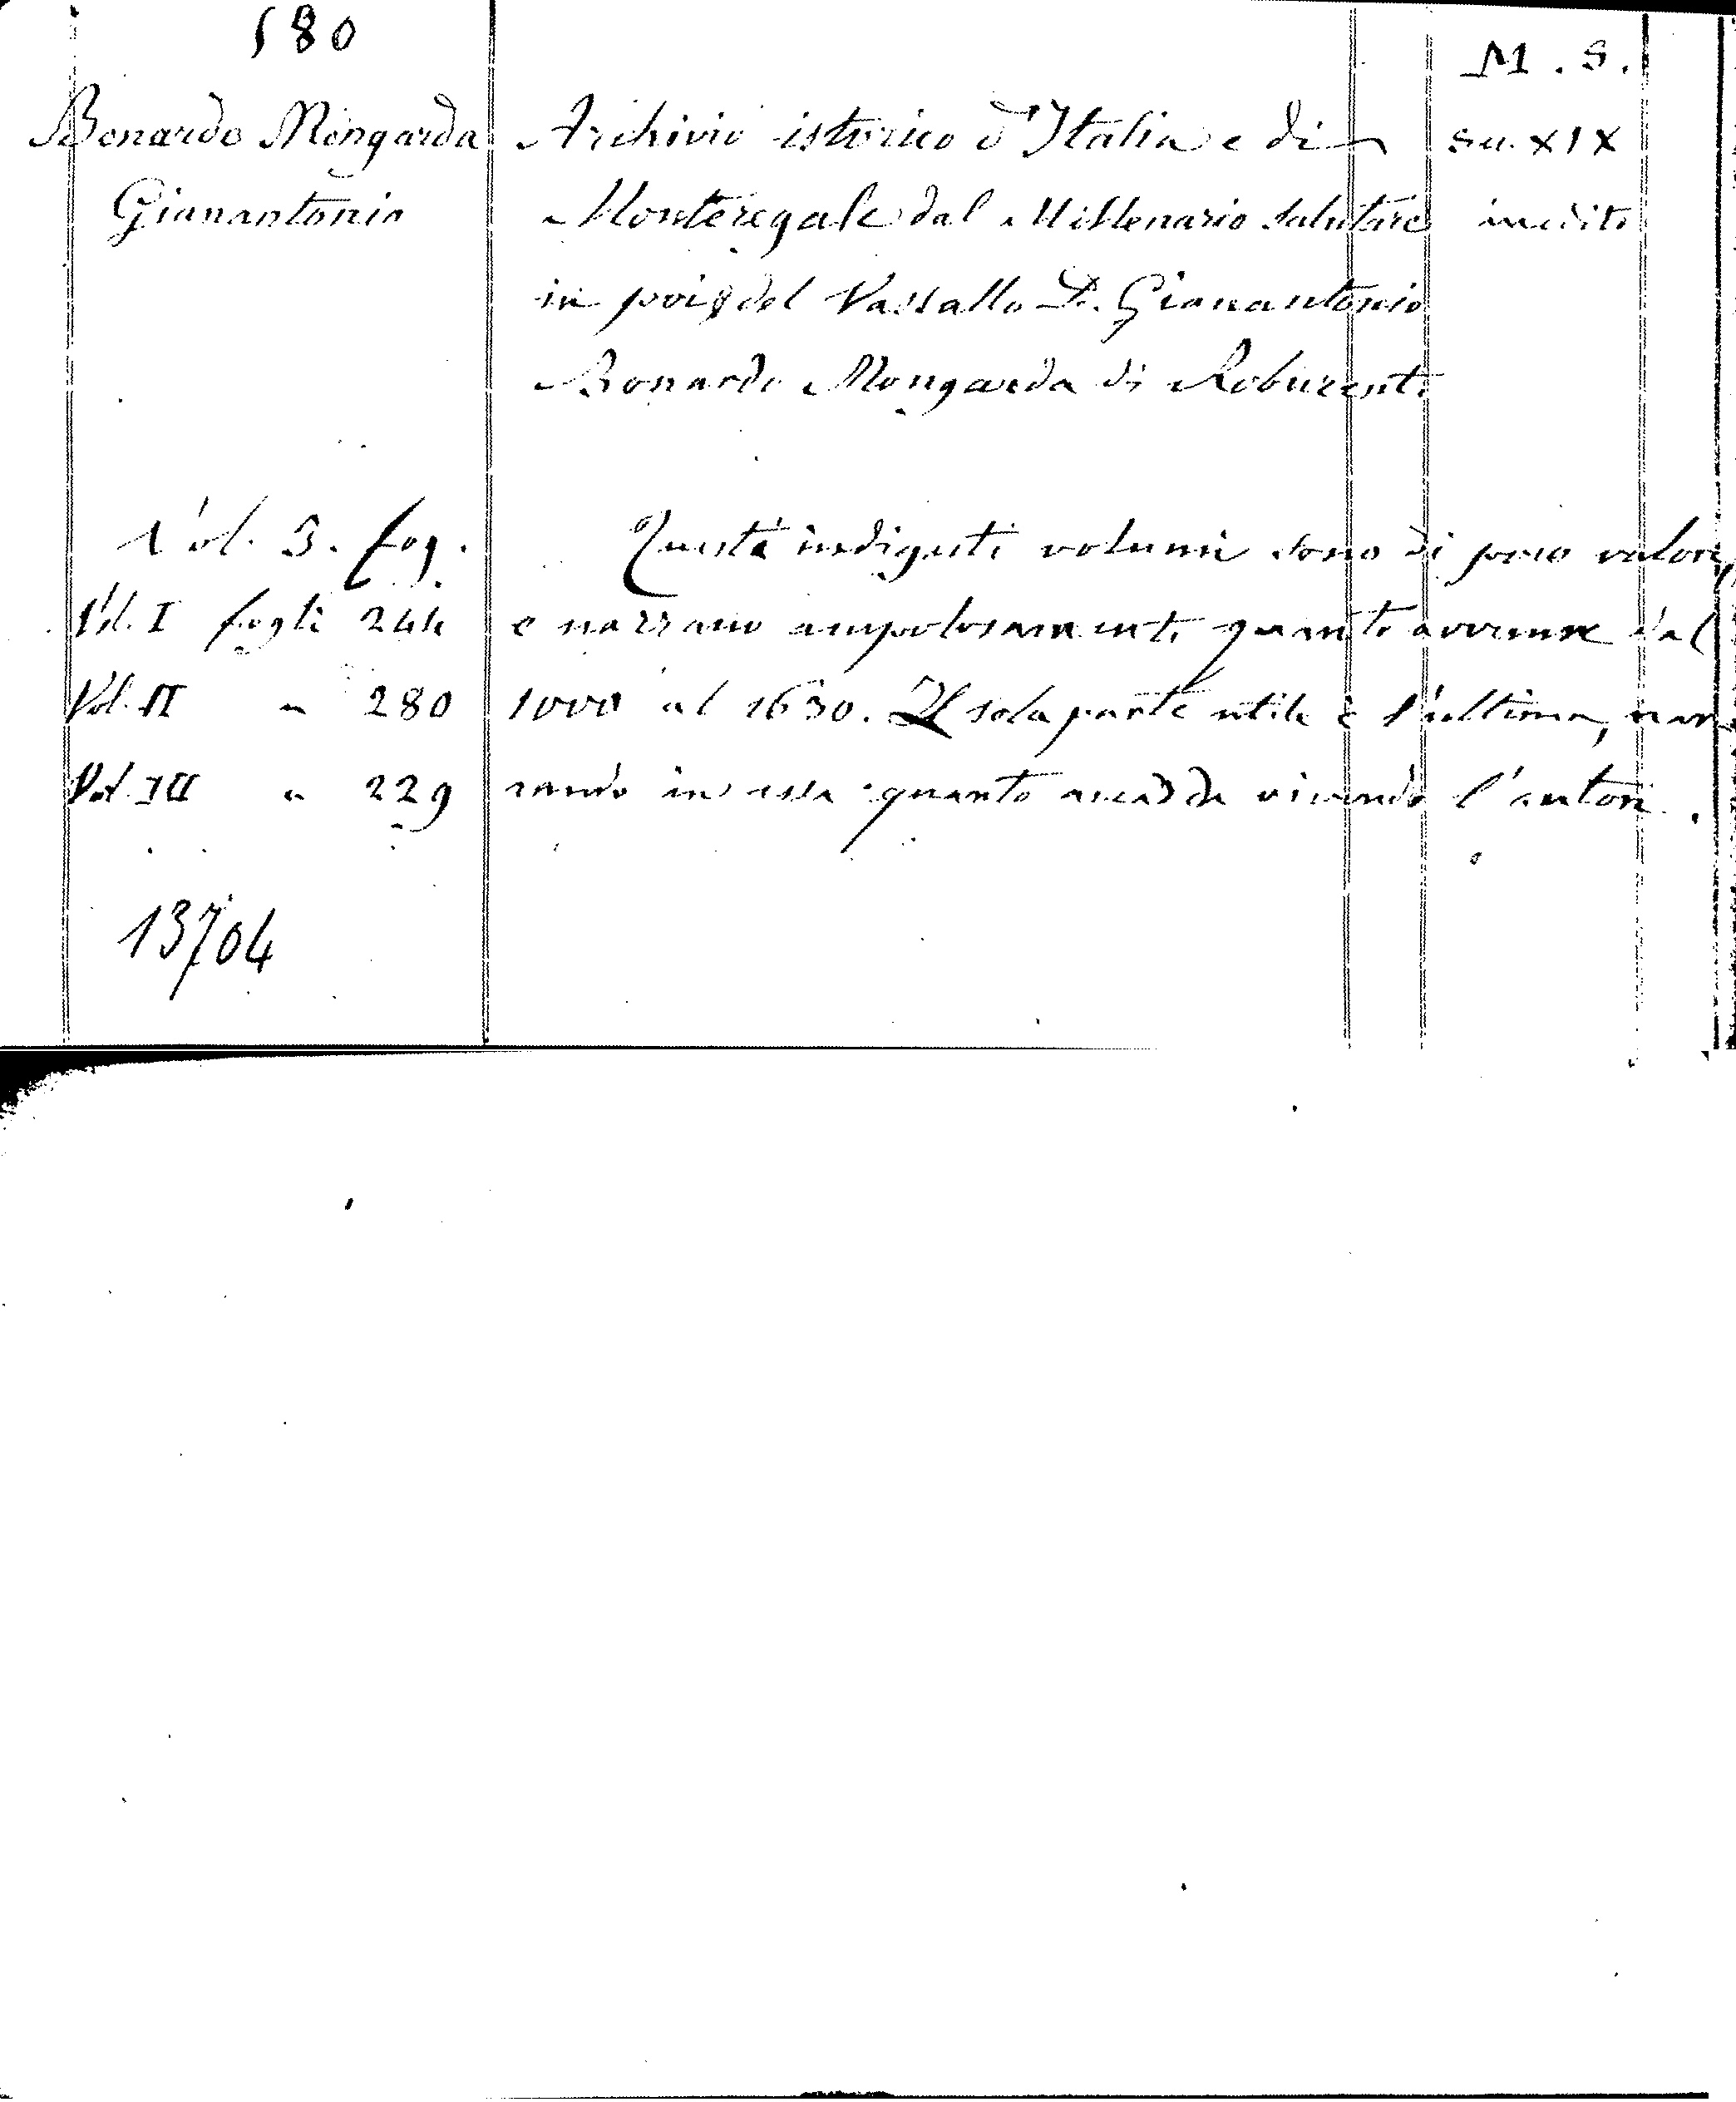 580
M. S.
Bonardo Mongarda
Gianantonio
Archivio istorico d'Italia e di
Monteregale dal Millenario salutare
in poi del Vassallo D. Gianantonio
Bonardo Mongarda di Roburent.
sec. XIX
inedito
Vol. 3. fog.
Vol. I fogli 244
Vol. II " 280
Vol. III " 229
Questi indigesti volumi sono di poco valore,
e narrano ampolosamente quanto avvenne dal
1000 al 1630. La sola parte utile è l'ultima, nar-
rando in essa quanto accadde vivendo l'autore.
13704